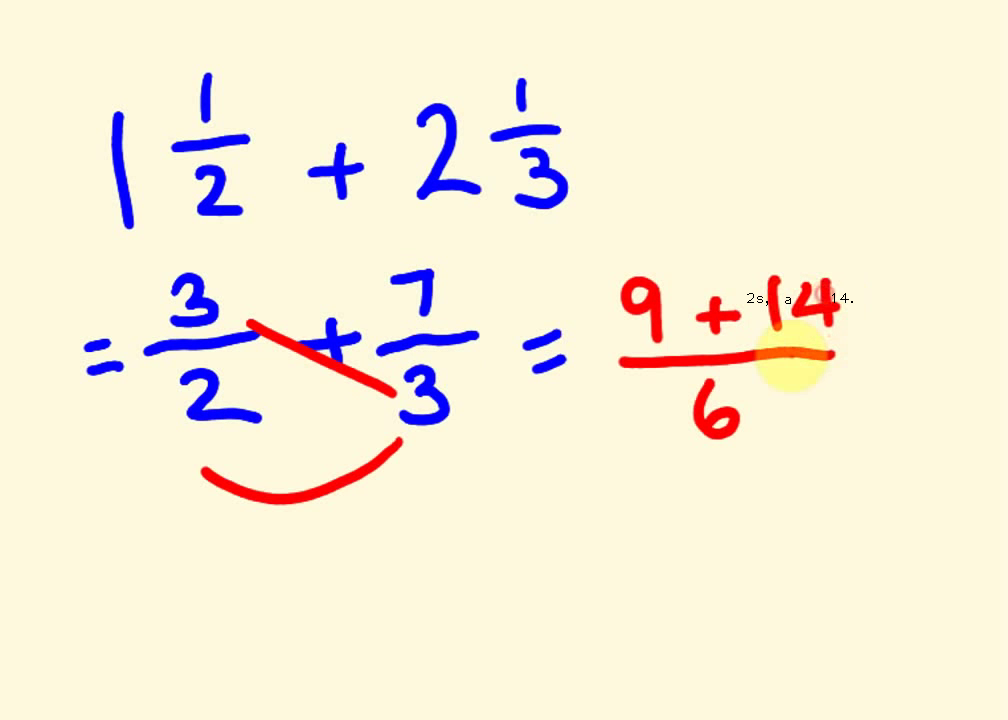 1 1/2 + 2 1/3
= 3/2 + 7/3 = (9 + 14)/6
2s, a 14.